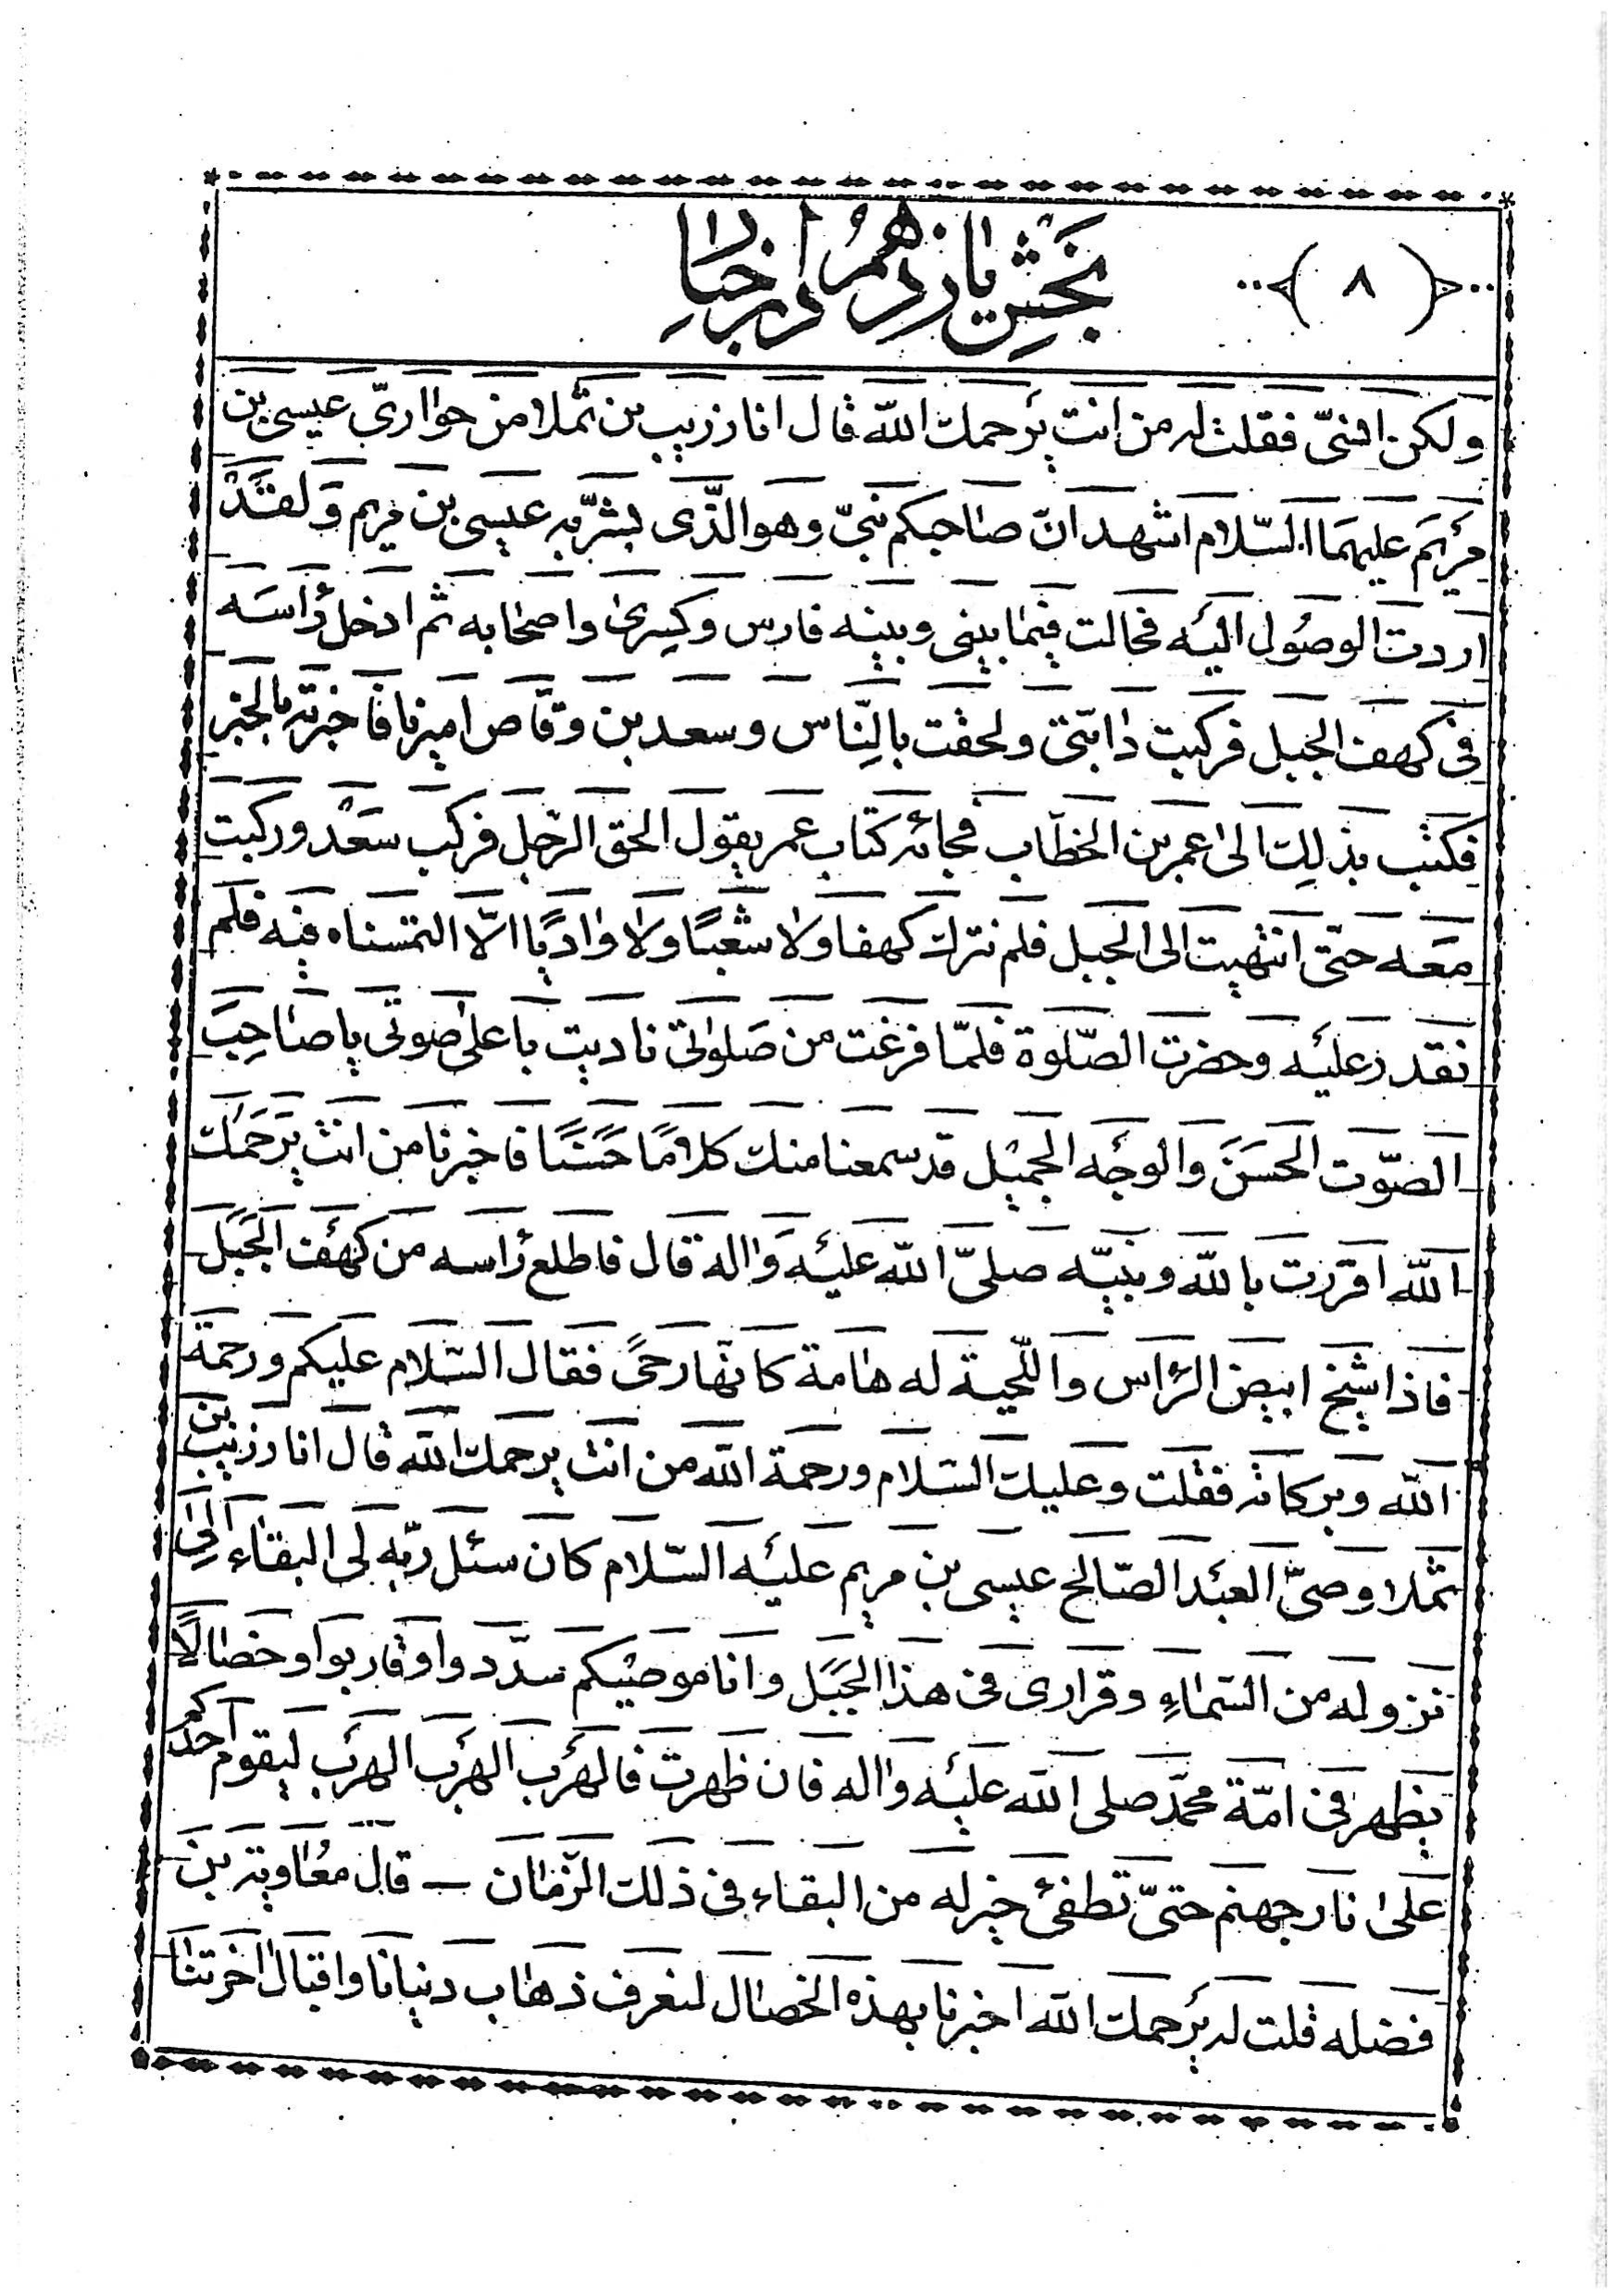 ﴿ ٨ ﴾ بخش یازدهم در اخبار
ولكن انسیّ فقلت له من انت یَرحمك اللّه قال انا رزیب بن ثملا من حواریّ عیسی بن
مَرْیَم علیهمَا السّلام اشهد انّ صٰاحبكم نبیّ وهو الّذی بشّر به عیسی بن مریم وَلقَدْ
اردت الوصُول الیَه فحالت فیمٰا بینی وبینه فارس وكِسریٰ واصحٰابه ثم ادخل رأسَه
فی كهف الجبل فركبت دٰابّتی ولحقت بالنّاس وسعد بن وقّاص امیرنا فأخبرته بالخبر
فكتب بذلِك الی عمر بن الخطّاب فجائه كتاب عمر یقول الحق الرّجل فركب سَعْد وركبت
مَعَه حتّی انتهیت الی الجبل فلم نترك كهفا ولا شعبًا ولا وٰادیًا الّا التمسناه فیه فلم
نقدر علیَه وحضرت الصّلوة فلمّا فرغت من صَلوٰاتی نادیت بأعلیٰ صوتی یا صٰاحِبَ
الصّوت الحَسَنَ وَالوجَه الجمیْل قد سمعنا منك كلامًا حَسَنًا فاخبرنا من انت یَرحَمك
اللّه اقررت باللّه ونبیّه صلیّ اللّه علیَه وَاٰله قال فاطلع رأسه من كهَف الجَبَل
فاذا شیخ ابیض الرّأس واللّحیة له هٰامة كأنّها رحیً فقال السّلام علیكم ورحمة
اللّه وبركاته فقلت وعلیك السّلام ورحمة اللّه من انت یرحمك اللّه قال انا رزیب بن
ثملا وصیَّ العبَد الصّالح عیسی بن مریم علیَه السّلام كان سئل ربّه لی البقٰاء اِلیٰ
نزوله من السّمٰاءِ وقراری فی هذا الجَبَل وانا موصیْكم سدّدوا وقاربوا وخصٰالاً
یظهر فی امّة محمّد صلی اللّه علیَه واٰله فان ظهرت فالهَرَب الهَرَب الهَرَب لیقوم احدكم
علیٰ نار جهنم حتیّ تطفئ خیر له من البقاء فی ذلك الزّمٰان ــ قال معُاویة بن
فضله قلت له یَرحمك اللّه اخبرنا بهذه الخصٰال لنعرف ذهٰاب دنیانا واقبال اٰخرتنٰا